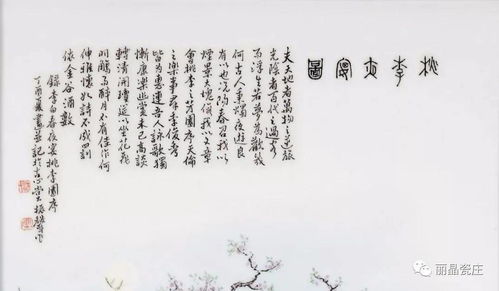 桃李夜宴圖
夫天地者萬物之逆旅
光陰者百代之過客
而浮生若夢為歡幾
何古人秉燭夜遊良
有以也況陽春召我以
煙景大塊假我以文章
會桃李之芳園序天倫
之樂事群季俊秀
皆為惠連吾人詠歌獨
慚康樂幽賞未已高談
轉清開瓊筵以坐花飛
羽觴而醉月不有佳作何
伸雅懷如詩不成罰
依金谷酒數
錄李白春夜宴桃李園序
丁酉夏畫并記於
丽晶瓷庄